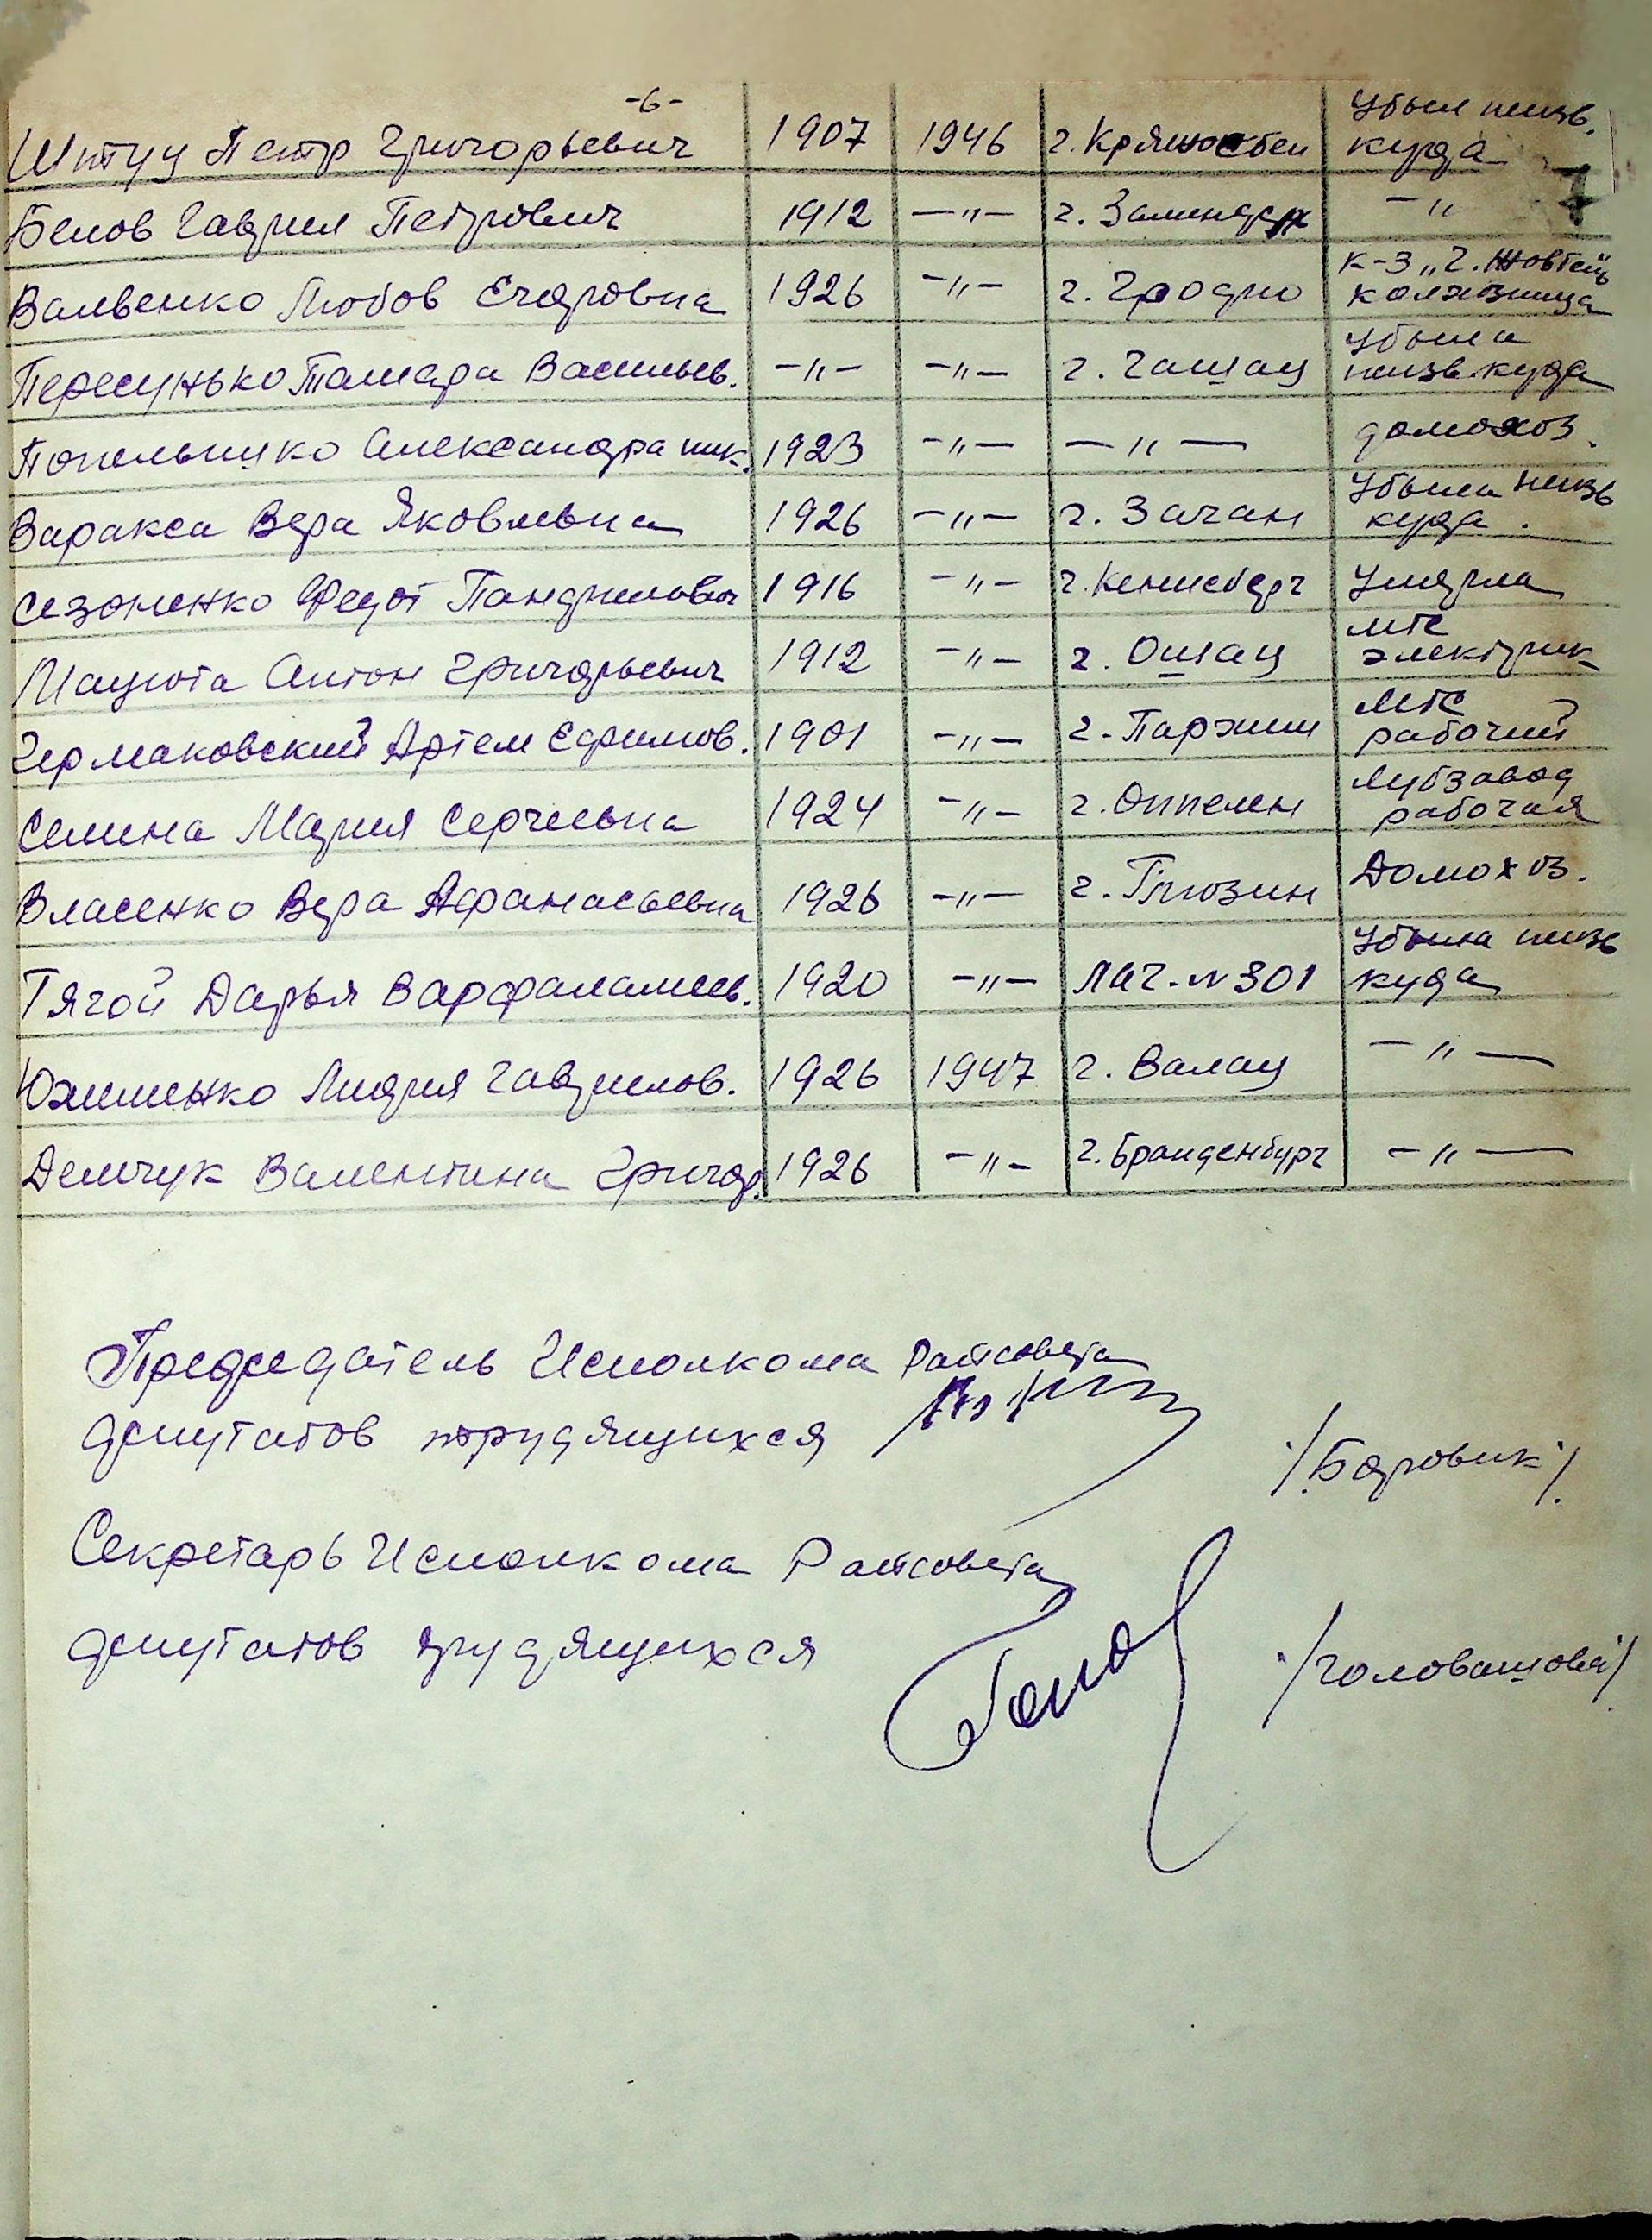 -6-
Штуц Петр Григорьевич 1907 1946 г. Убыл неизв. куда
Белов Гаврил Петрович 1912 -"- г. -"
Вальвенко Любов Егоровна 1926 -"- г. Гродно к-з "Ч. Жовтень" колхозница
Пересунько Тамара Васильев. -"- -"- г. Гашац Убыла неизв. куда
Попельнушко Александра ник. 1923 -"- -"- домохоз.
Варакса Вера Яковлевна 1926 -"- г. Заган Убыла неизв куда.
Сезоненко Федот Панфилович 1916 -"- г. Кенисберг Умерла
Мацюта Антон Григорьевич 1912 -"- г. Ошац МТС электрик
Гермаковский Артем Ефимов. 1901 -"- г. Пархим МТС рабочий
Семина Мария Сергеевна 1924 -"- г. Оппелен Лубзавод рабочая
Власенко Вера Афанасьевна 1926 -"- г. Глюзин Домохоз.
Тягой Дарья Варфаламеев. 1920 -"- ЛАГ. N 301 Убыла неизв куда
Юхименко Лидия Гаврилов. 1926 1947 г. Валац -"-
Демчук Валентина Григор. 1926 -"- г. Бранденбург -"-
Председатель Исполкома Райсовета
депутатов трудящихся /Боровик/.
Секретарь Исполкома Райсовета
депутатов трудящихся /Головашова/